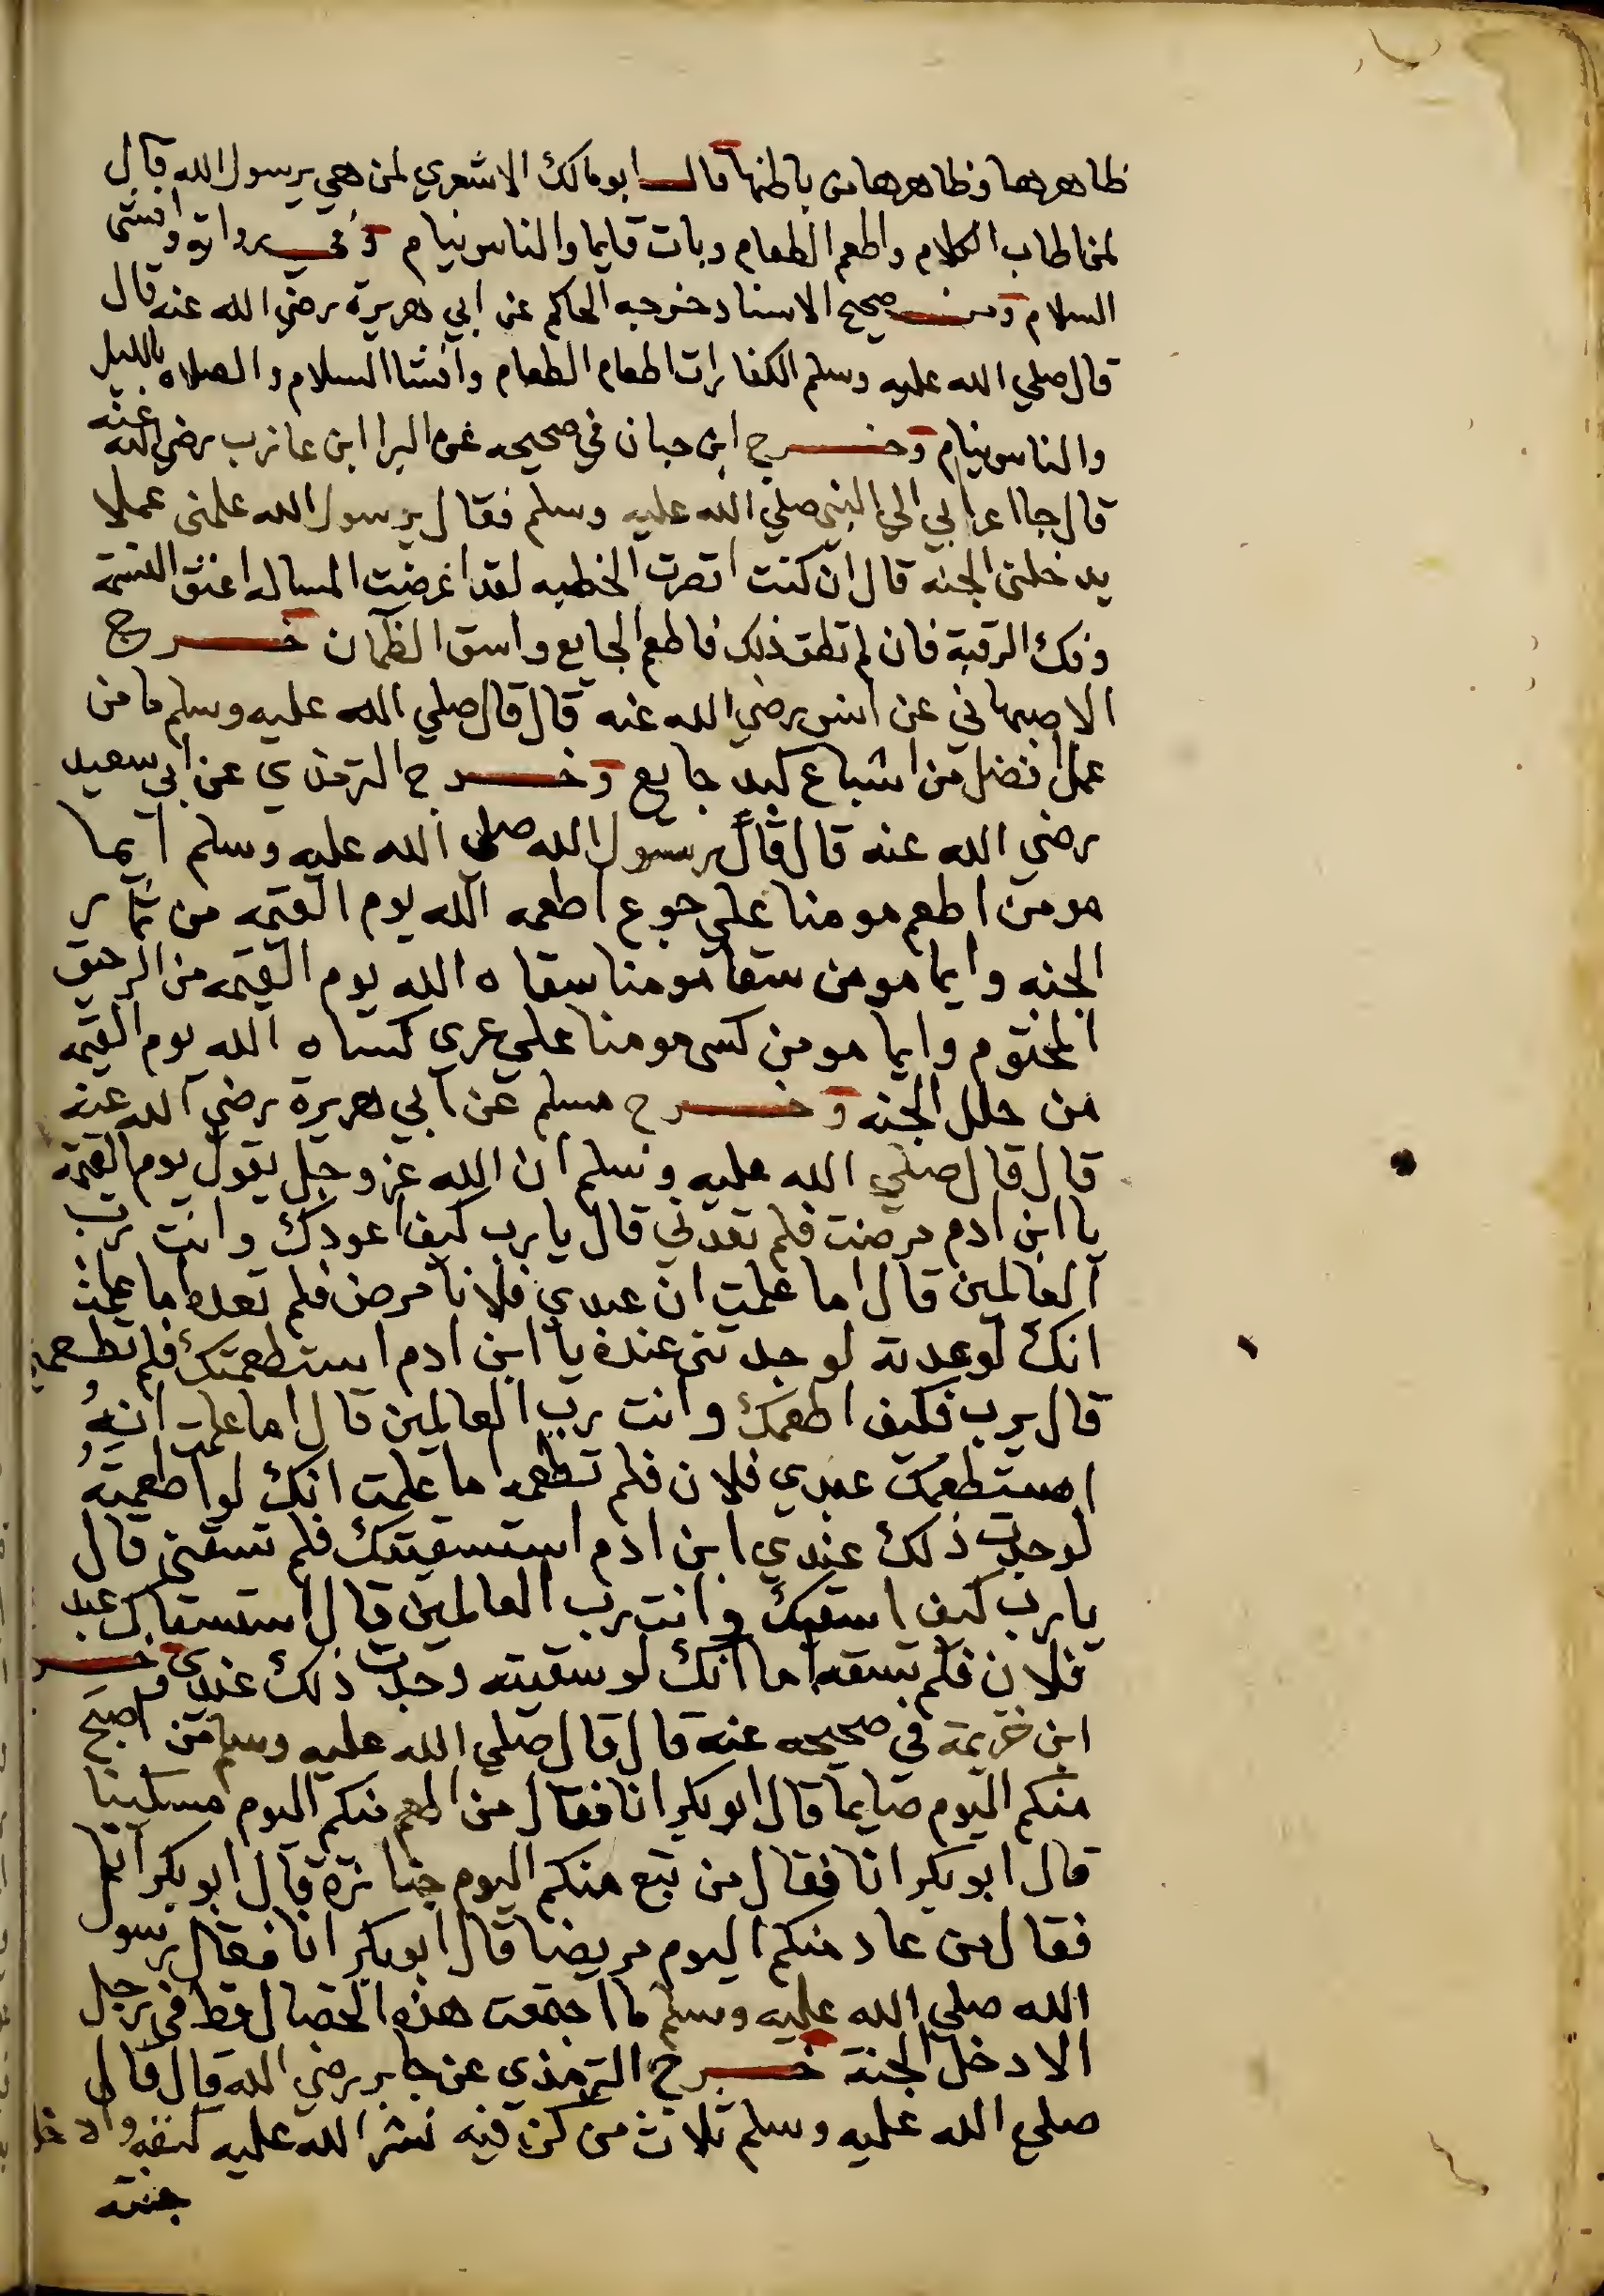 ظاهرها وظاهرها من باطنها قال ابو مالك الاشعري لمن هي يرسول الله قال
لمن اطاب الكلام واطعم الطعام وبات قايما والناس نيام وفي رواية وافشى
السلام ومن صحيح الاسناد خرجه الحاكم عن ابي هريرة رضي الله عنه قال
قال صلي الله عليه وسلم الكفارات اطعام الطعام وافشا السلام والصلاه بالليل
والناس نيام وخرج ابن حبان في صحيحه عن البرا ابن عازب رضي الله عنه
قال جا اعرابي الي النبي صلي الله عليه وسلم فقال يرسول الله علمنى عملا
يدخلنى الجنه قال ان كنت اقصرت الخطبه لقد اعرضت المساله اعتق النسمة
وفك الرقبة فان لم تطق ذلك فاطعم الجايع واسق الظمآن خرج
الاصبهاني عن انس رضي الله عنه قال قال صلي الله عليه وسلم ما من
عمل افضل من اشباع كبد جايع وخرج الترمذي عن ابي سعيد
رضي الله عنه قال قال رسول الله صلى الله عليه وسلم ايما
مومن اطعم مومنا علي جوع اطعمه الله يوم القيمه من ثمار
الجنه وايما مومن سقا مومنا سقاه الله يوم القيمه من الرحيق
المختوم وايما مومن كسى مومنا علي عري كساه الله يوم القيمه
من حلل الجنه وخرج مسلم عن ابي هريرة رضي الله عنه
قال قال صلي الله عليه وسلم ان الله عز وجل يقول يوم القيمة
يا ابن ادم مرضت فلم تعدني قال يا رب كيف اعودك وانت رب
العالمين قال اما علمت ان عبدي فلانا مرض فلم تعده اما علمت
انك لو عدته لوجدتنى عنده يا ابن ادم استطعمتك فلم تطعمني
قال يرب فكيف اطعمك وانت رب العالمين قال اما علمت انه
استطعمك عبدي فلان فلم تطعمه اما علمت انك لو اطعمته
لوجدت ذلك عندي ابن ادم استسقيتك فلم تسقنى قال
يا رب كيف اسقيك وانت رب العالمين قال استسقاك عبد
فلان فلم تسقه اما انك لو سقيته وجدت ذلك عندي وخر
ابن خزيمة في صحيحه عنه قال قال صلي الله عليه وسلم من اصبح
منكم اليوم صايما قال ابو بكر انا فقال من اطعم منكم اليوم مسكينا
قال ابو بكر انا فقال من تبع منكم اليوم جنازة قال ابو بكر انا
فقال من عاد منكم اليوم مريضا قال ابو بكر انا فقال رسول
الله صلي الله عليه وسلم ما اجتمعت هذه الخصال قط في رجل
الا دخل الجنة خرج الترمذي عن جابر رضي الله قال قال
صلي الله عليه وسلم ثلاث من كن فيه نشر الله عليه كنفه وادخله
جنته